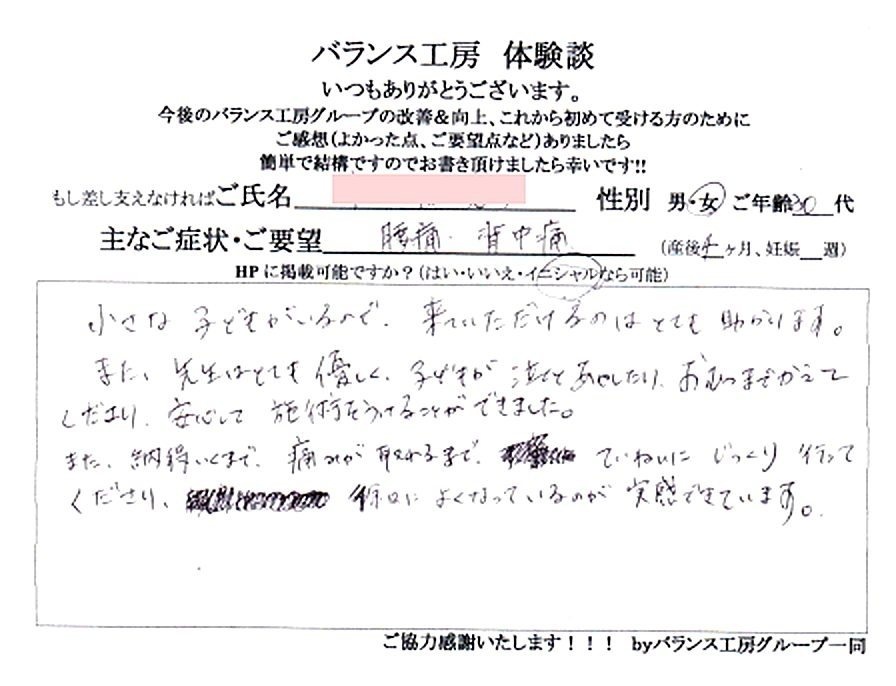 バランス工房 体験談
いつもありがとうございます。
今後のバランス工房グループの改善&向上、これから初めて受ける方のために
ご感想(よかった点、ご要望点など)ありましたら
簡単で結構ですのでお書き頂けましたら幸いです!!
もし差し支えなければご氏名 性別 男・女 ご年齢30代
主なご症状・ご要望 腰痛・背中痛 (産後 ヶ月、妊娠 週)
HPに掲載可能ですか?(はい・いいえ・イニシャルなら可能)
小さな子どもがいるので、来ていただけるのはとても助かります。
また、先生はとても優しく、子どもが泣くとあやしたり、おむつまでかえて
くださり、安心して施術をうけることができました。
また、納得いくまで、痛みが取れるまで、ていねいにじっくり行って
くださり、徐々によくなっているのが実感できています。
ご協力感謝いたします!!! byバランス工房グループ一同